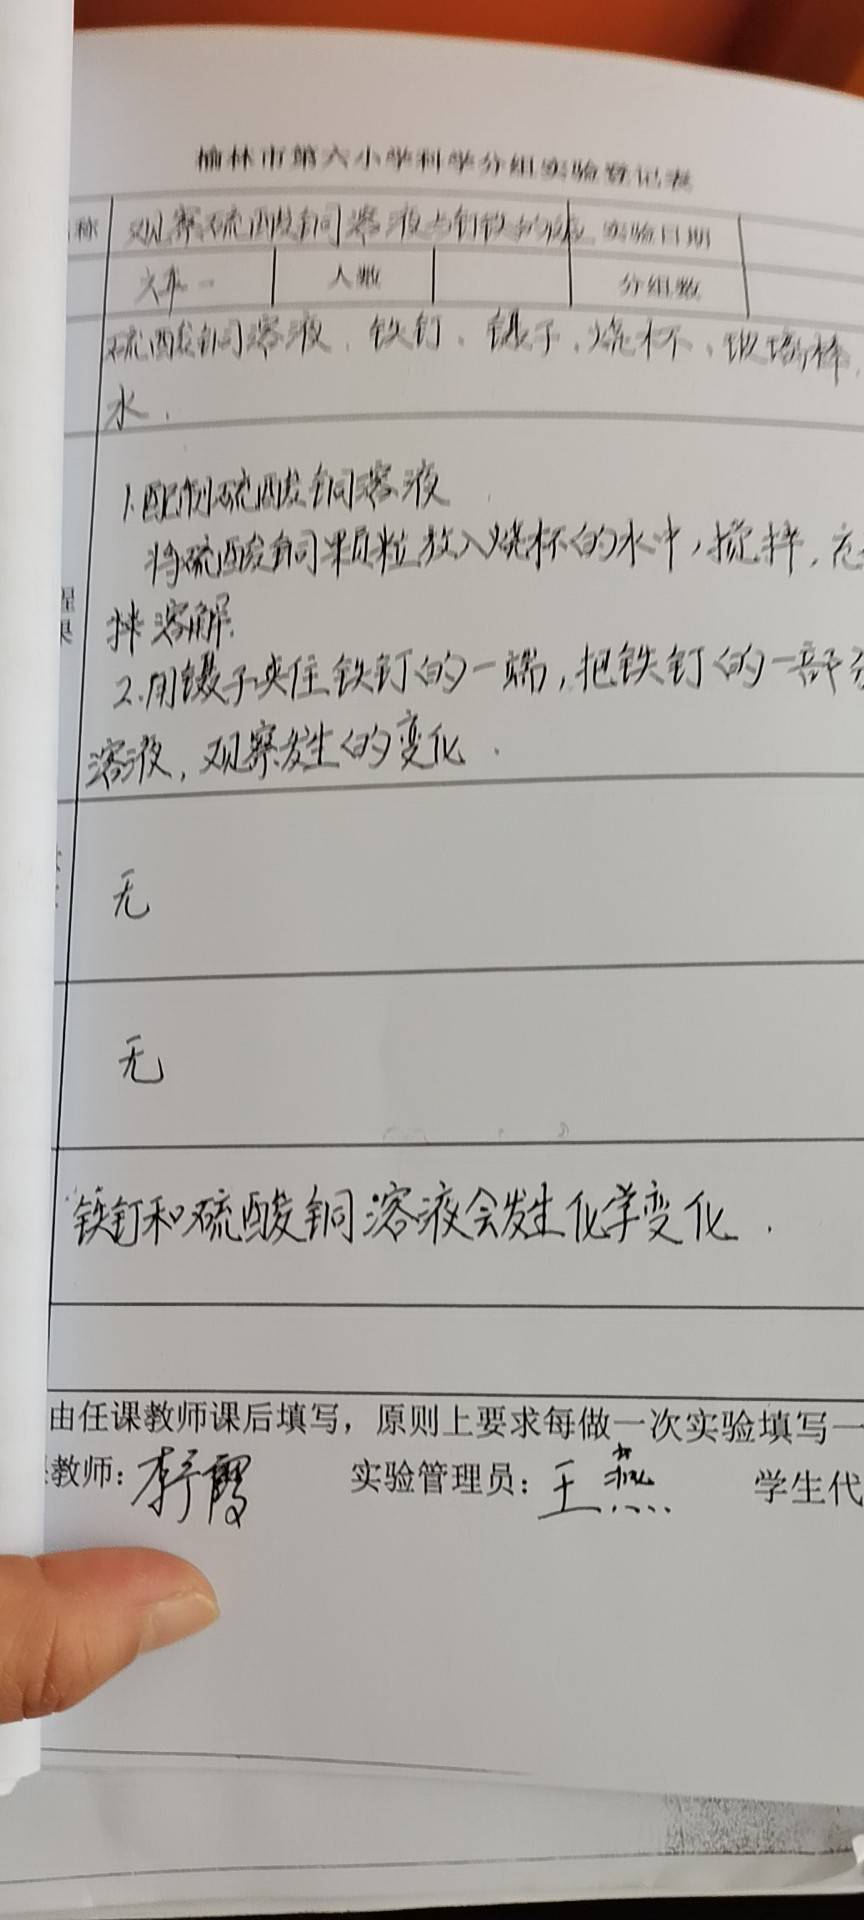 榆林市第六小学科学分组实验登记表
称 观察硫酸铜溶液与铁钉的 实验日期
六年一 人数 分组数
硫酸铜溶液、铁钉、镊子、烧杯、玻璃棒,
水.
1.配制硫酸铜溶液
将硫酸铜颗粒放入烧杯的水中,搅拌,
拌溶解.
程
果
2.用镊子夹住铁钉的一端,把铁钉的一部分
溶液,观察发生的变化.
无
无
铁钉和硫酸铜溶液会发生化学变化.
由任课教师课后填写,原则上要求每做一次实验填写一
教师: 李霞 实验管理员: 王燕 学生代